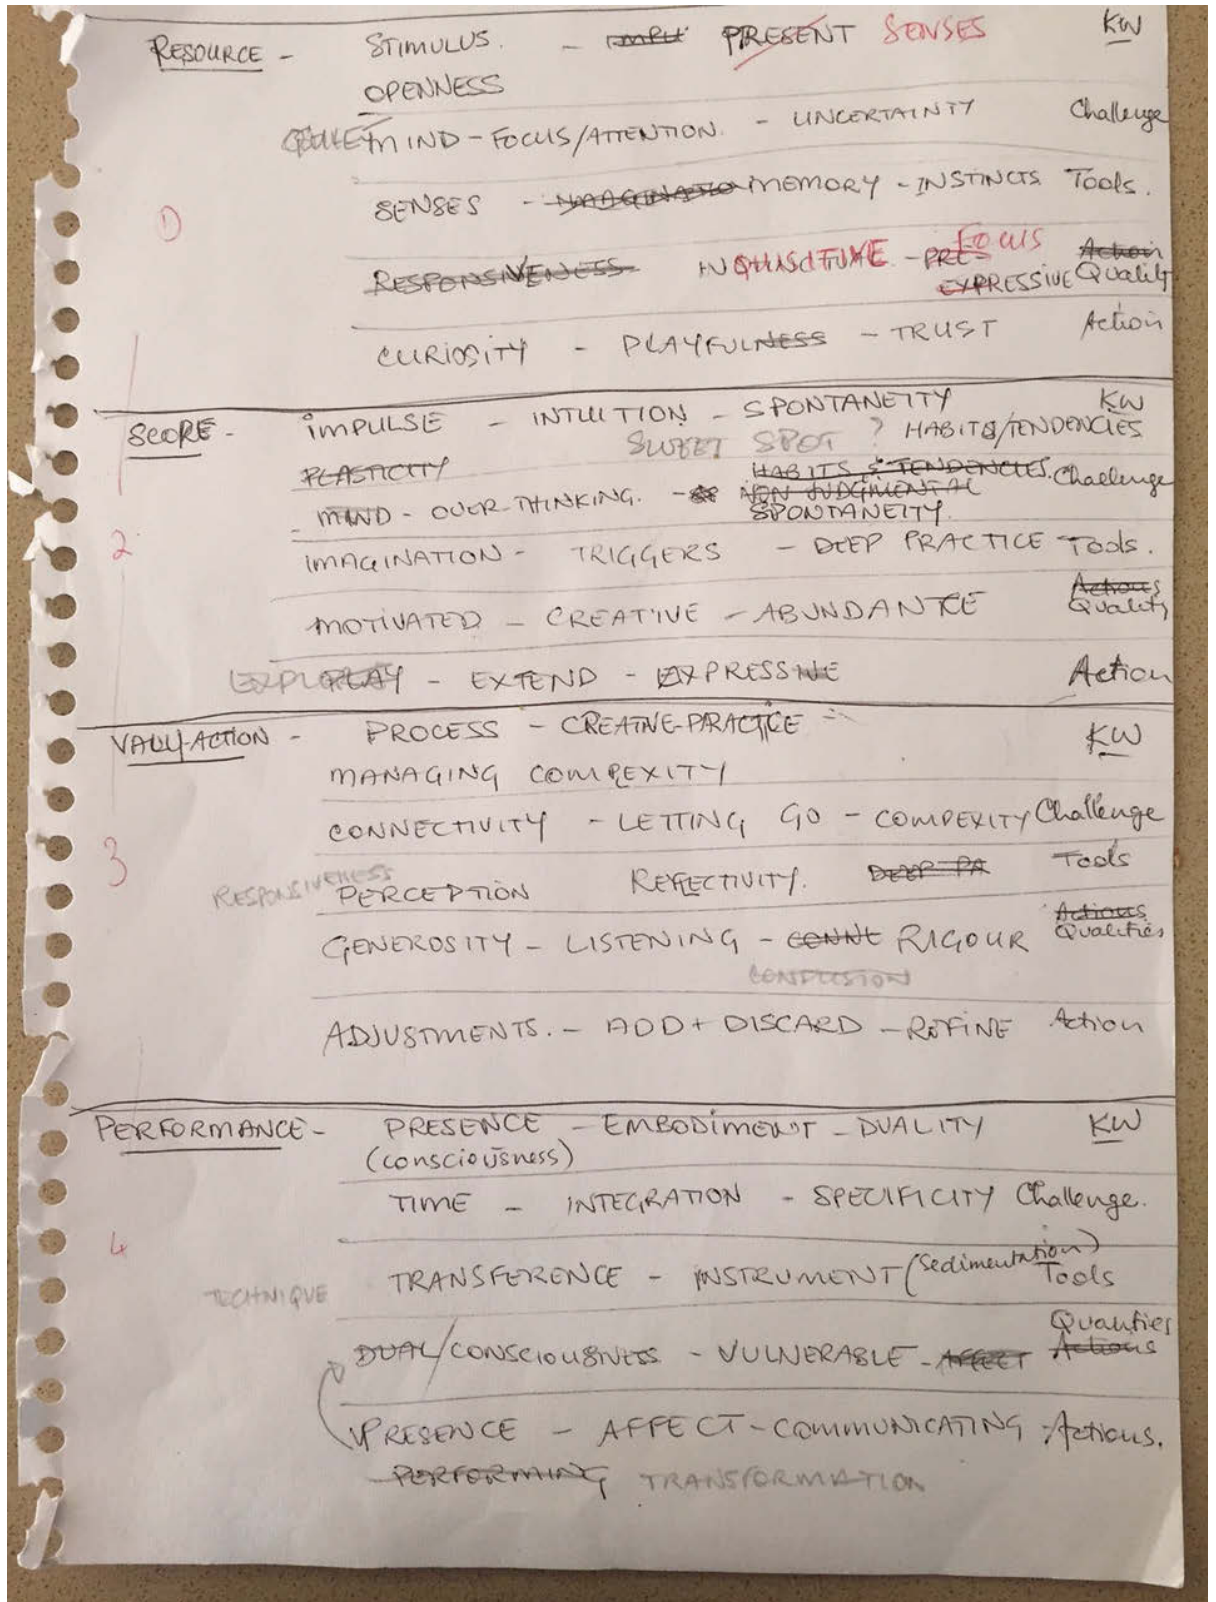 RESOURCE - STIMULUS. - PRESENT SENSES KW
OPENNESS
MIND - FOCUS/ATTENTION. - UNCERTAINTY Challenge
SENSES - IMAGINATIO MEMORY - INSTINCTS Tools.
1
RESPONSIVENESS INQUISITIVE - PRE- FOCUS Action
EXPRESSIVE Quality
CURIOSITY - PLAYFULNESS - TRUST Action
SCORE - IMPULSE - INTUITION - SPONTANEITY KW
SWEET SPOT ? HABITS/TENDENCIES
PLASTICITY HABITS & TENDENCIES. Challenge
MIND - OVER-THINKING. - NON JUDGMENTAL
SPONTANEITY.
2
IMAGINATION - TRIGGERS - DEEP PRACTICE Tools.
MOTIVATED - CREATIVE - ABUNDANCE Actions
Quality
PLAY - EXTEND - EXPRESSIVE Action
VALLY-ACTION - PROCESS - CREATIVE-PRACTICE KW
MANAGING COMPEXITY
CONNECTIVITY - LETTING GO - COMPEXITY Challenge
3
RESPONSIVENESS PERCEPTION REFLECTIVITY. DEEP PA Tools
GENEROSITY - LISTENING - CONNE RIGOUR Actions
Qualities
CONFUSION
ADJUSTMENTS. - ADD + DISCARD - REFINE Action
PERFORMANCE - PRESENCE - EMBODIMENT - DUALITY KW
(consciousness)
TIME - INTEGRATION - SPECIFICITY Challenge.
4
TECHNIQUE TRANSFERENCE - INSTRUMENT (Sedimentation) Tools
Qualities
DUAL/CONSCIOUSNESS - VULNERABLE - AFFECT Actions
PRESENCE - AFFECT - COMMUNICATING - Actions.
- PERFORMING TRANSFORMATION